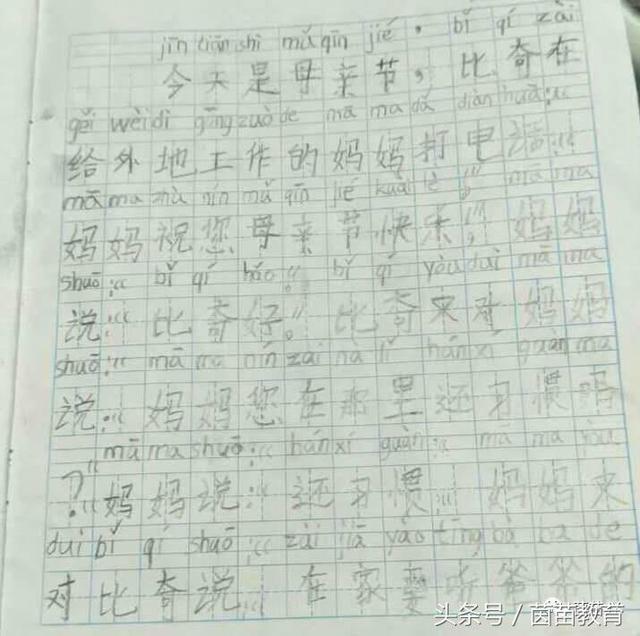 jīn tiān shì mǔ qīn jié , bǐ qí zài
今天是母亲节，比奇在
gěi wèi dì gōng zuò de mā ma dǎ diàn huà :“
给外地工作的妈妈打电话:“
mā ma zhù nín mǔ qīn jié kuài lè !” mā ma
妈妈祝您母亲节快乐!”妈妈
shuō :“ bǐ qí hǎo !” bǐ qí yòu duì mā ma
说:“比奇好!”比奇来对妈妈
shuō :“ mā ma nín zài na lǐ hán xí guàn ma
说:“妈妈您在那里还习惯吗
mā ma shuō :“ hán xí guàn !” mā ma
?”妈妈说:“还习惯!”妈妈来
duì bǐ qí shuō :“ zài jiā yào tīng bà ba de
对比奇说:“在家要听爸爸的
头条号／茵苗教育